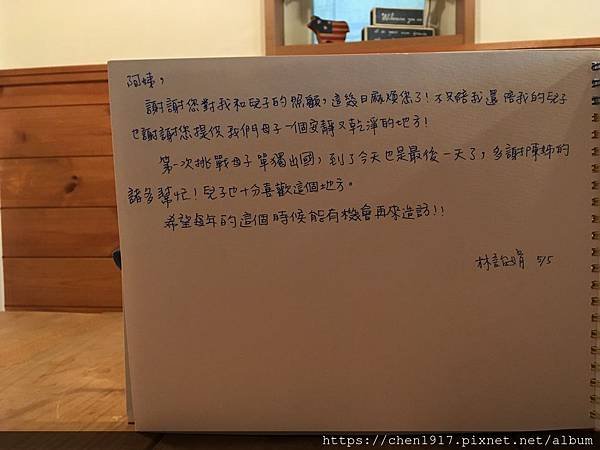 阿姨，
謝謝您對我和兒子的照顧，這幾日麻煩您了！不只陪我還陪我的兒子
也謝謝您提供我們母子一個安靜又乾淨的地方！
第一次挑戰母子單獨出國，到了今天也是最後一天了，多謝陳姊的
諸多幫忙！兒子也十分喜歡這個地方。
希望每年的這個時候能有機會再來造訪！！
林 5/5
Welcome
https://chen1917.pixnet.net/album